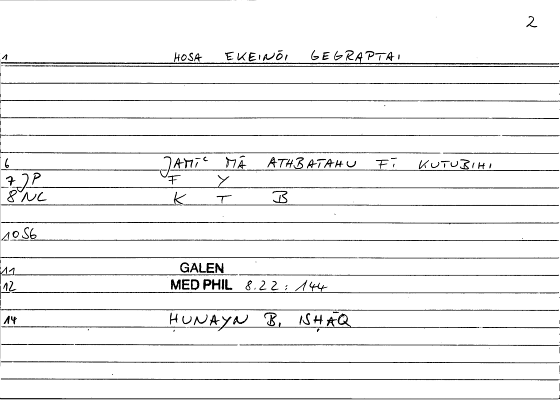 2
1 HOSA EKEINŌI GEGRAPTAI
6 JAMĪʿ MĀ ATHBATAHU FĪ KUTUBIHI
7 JP F Y
8 NC K T B
10 S6
11 GALEN
12 MED PHIL 8.22 : 144
14 ḤUNAYN B. ISḤĀQ